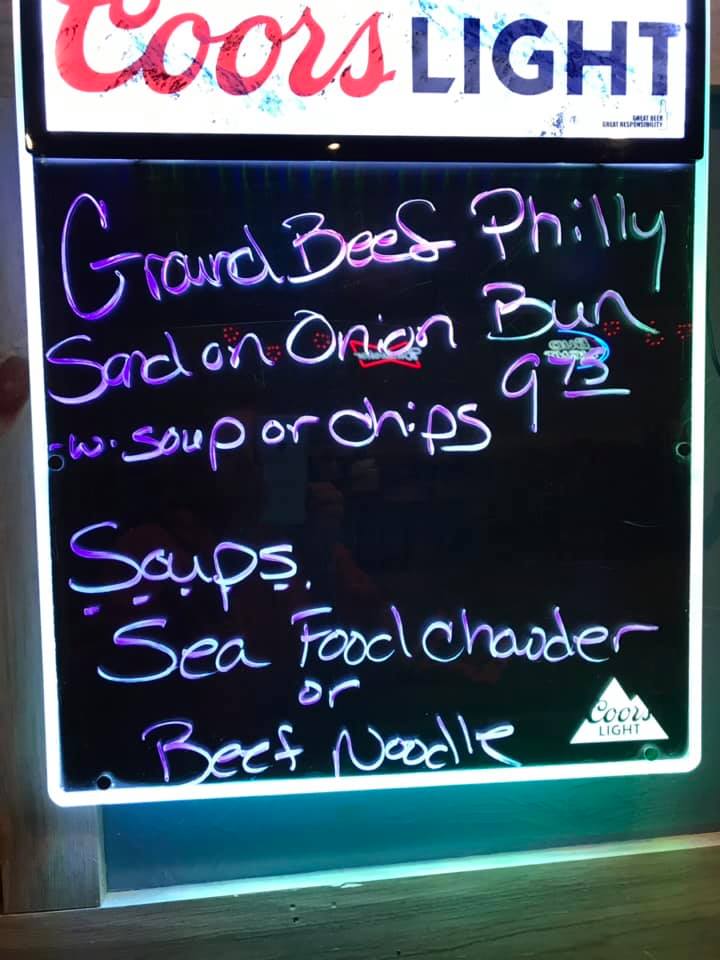 Coors LIGHT
GREAT BEER
GREAT RESPONSIBILITY
Ground Beef Philly
Sand on Onion Bun
9 75
-w. soup or chips
Soups.
Sea Food chawder
or
Beef Noodle
Coors
LIGHT